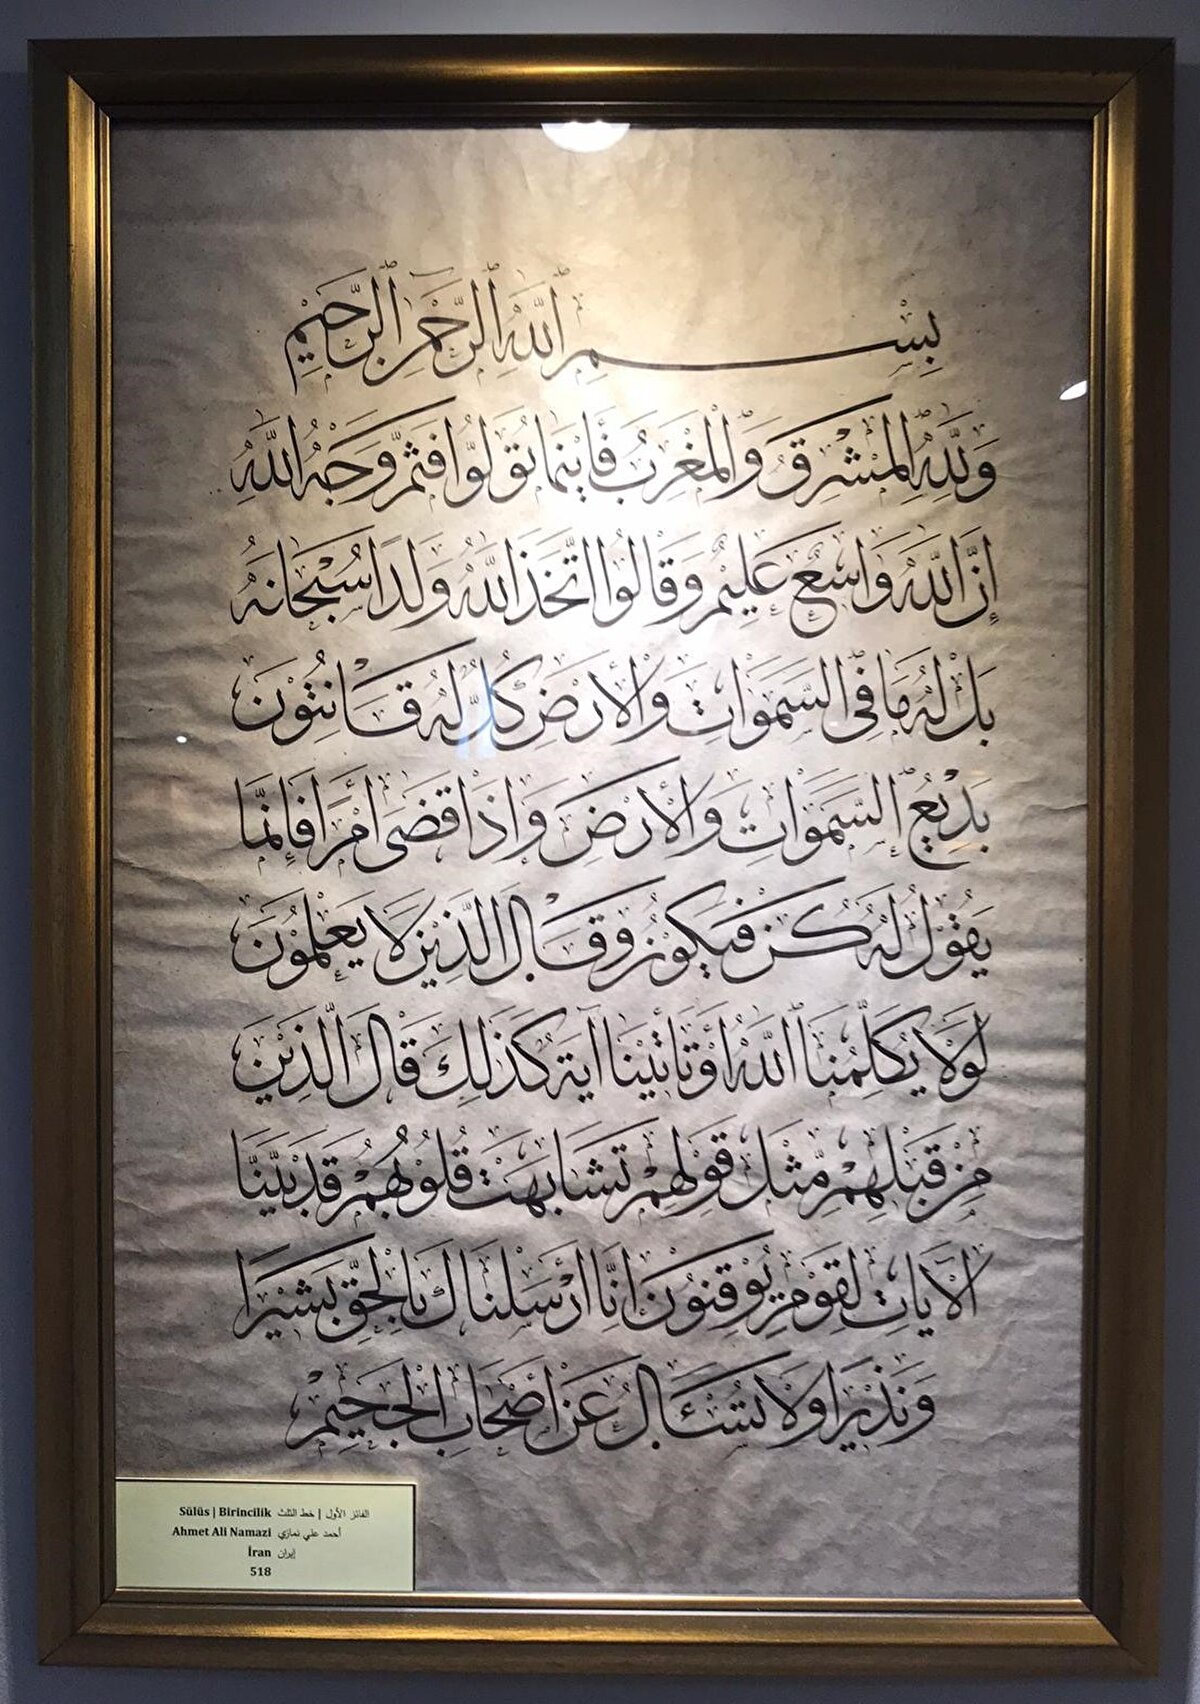 بِسْمِ ٱللَّهِ ٱلرَّحْمٰنِ ٱلرَّحِيْمِ
وَلِلَّهِ الْمَشْرِقُ وَالْمَغْرِبُ فَأَيْنَمَا تُوَلُّوا فَثَمَّ وَجْهُ اللَّهِ
إِنَّ اللَّهَ وَاسِعٌ عَلِيمٌ وَقَالُوا اتَّخَذَ اللَّهُ وَلَدًا سُبْحَانَهُ
بَلْ لَهُ مَا فِي السَّمَوَاتِ وَالْأَرْضِ كُلٌّ لَهُ قَانِتُوْنَ
بَدِيْعُ السَّمَوَاتِ وَالْأَرْضِ وَاِذَا قَضَى أَمْرًا فَإِنَّمَا
يَقُوْلُ لَهُ كُنْ فَيَكُوْنُ وَقَالَ الَّذِيْنَ لَا يَعْلَمُوْنَ
لَوْلَا يُكَلِّمُنَا ٱللَّهُ أَوْ تَأْتِيْنَا آيَةٌ كَذَلِكَ قَالَ الَّذِيْنَ
مِنْ قَبْلِهِمْ مِّثْلَ قَوْلِهِمْ تَشَابَهَتْ قُلُوْبُهُمْ قَدْ بَيَّنَّا
الْآيَاتِ لِقَوْمٍ يُوْقِنُوْنَ اِنَّا اَرْسَلْنَاكَ بِالْحَقِّ بَشِيْرًا
وَنَذِيْرًا وَلَا تُسْئَلُ عَنْ اَصْحَابِ الْجَحِيْمِ
Sülüs | Birincilik الفائز الأول | خط الثلث
Ahmet Ali Namazi أحمد علي نمازي
İran إيران
518